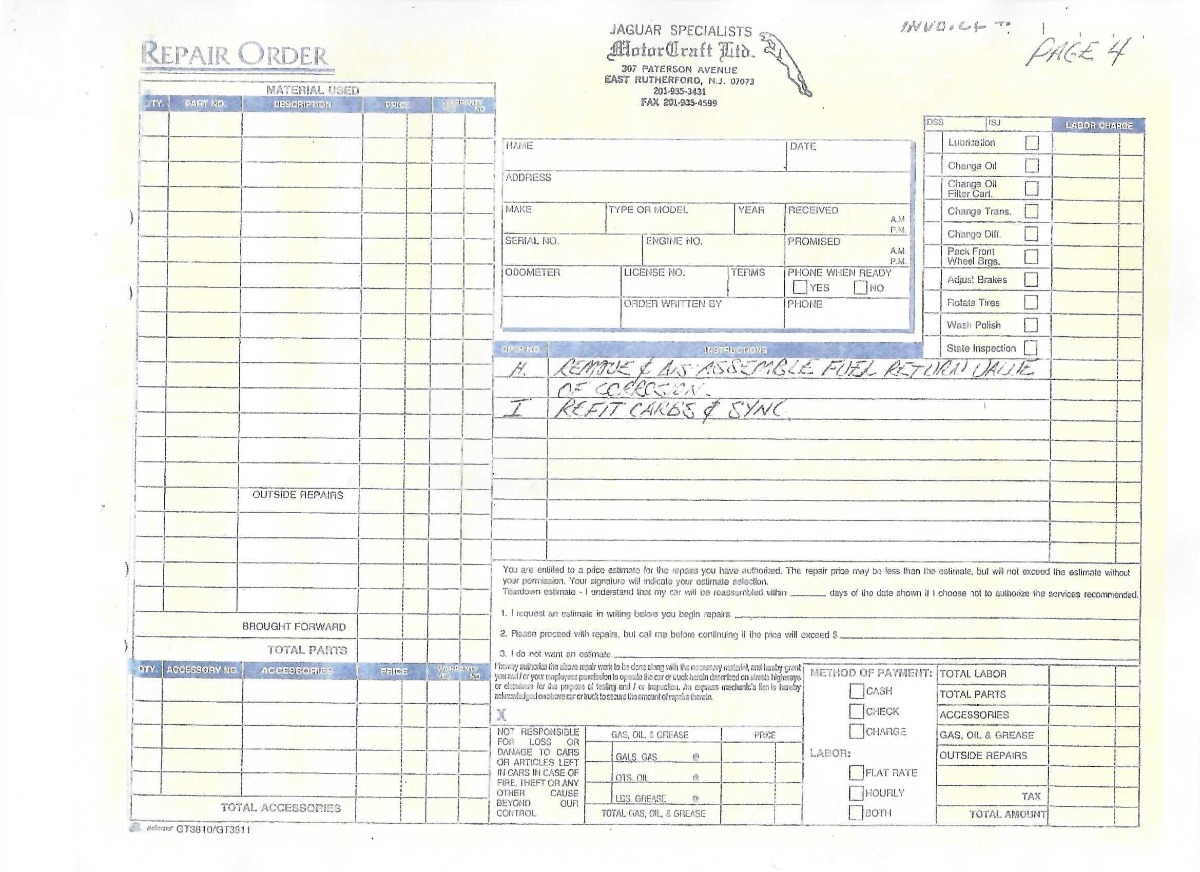 JAGUAR SPECIALISTS
MotorCraft Ltd.
307 PATERSON AVENUE
EAST RUTHERFORD, N.J. 07073
201-935-3431
FAX 201-935-4599
INVOICE
PAGE 4
REPAIR ORDER
MATERIAL USED
QTY. PART NO. DESCRIPTION PRICE WARRANTY YES NO
OUTSIDE REPAIRS
BROUGHT FORWARD
TOTAL PARTS
QTY. ACCESSORY NO. ACCESSORIES PRICE WARRANTY YES NO
TOTAL ACCESSORIES
GT3810/GT3811
NAME DATE
ADDRESS
MAKE TYPE OR MODEL YEAR RECEIVED A.M.
P.M.
SERIAL NO. ENGINE NO. PROMISED A.M.
P.M.
ODOMETER LICENSE NO. TERMS PHONE WHEN READY
YES NO
ORDER WRITTEN BY PHONE
DSS ISJ LABOR CHARGE
Lubrication
Change Oil
Change Oil
Filter Cart.
Change Trans.
Change Diff.
Pack Front
Wheel Brgs.
Adjust Brakes
Rotate Tires
Wash Polish
State Inspection
OPER. NO. INSTRUCTIONS
H. REMOVE & ASSEMBLE FUEL RETURN VALVE
OF CORROSION.
I REFIT CARBS & SYNC.
You are entitled to a price estimate for the repairs you have authorized. The repair price may be less than the estimate, but will not exceed the estimate without
your permission. Your signature will indicate your estimate selection.
Teardown estimate - I understand that my car will be reassumbled within ______ days of the date shown if I choose not to authorize the services recommended.
1. I request an estimate in writing before you begin repairs
2. Please proceed with repairs, but call me before continuing if the price will exceed $
3. I do not want an estimate
I hereby authorize the above repair work to be done along with the necessary material, and hereby grant
you and / or your employees permission to operate the car or truck herein described on streets highways
or elsewhere for the purpose of testing and / or inspection. An express mechanic's lien is hereby
acknowledged on above car or truck to secure the amount of repairs thereto.
X
NOT RESPONSIBLE
FOR LOSS OR
DAMAGE TO CARS
OR ARTICLES LEFT
IN CARS IN CASE OF
FIRE, THEFT OR ANY
OTHER CAUSE
BEYOND OUR
CONTROL
GAS, OIL, & GREASE PRICE
GALS. GAS @
QTS. OIL @
LBS. GREASE @
TOTAL GAS, OIL, & GREASE
METHOD OF PAYMENT:
CASH
CHECK
CHARGE
LABOR:
FLAT RATE
HOURLY
BOTH
TOTAL LABOR
TOTAL PARTS
ACCESSORIES
GAS, OIL & GREASE
OUTSIDE REPAIRS
TAX
TOTAL AMOUNT